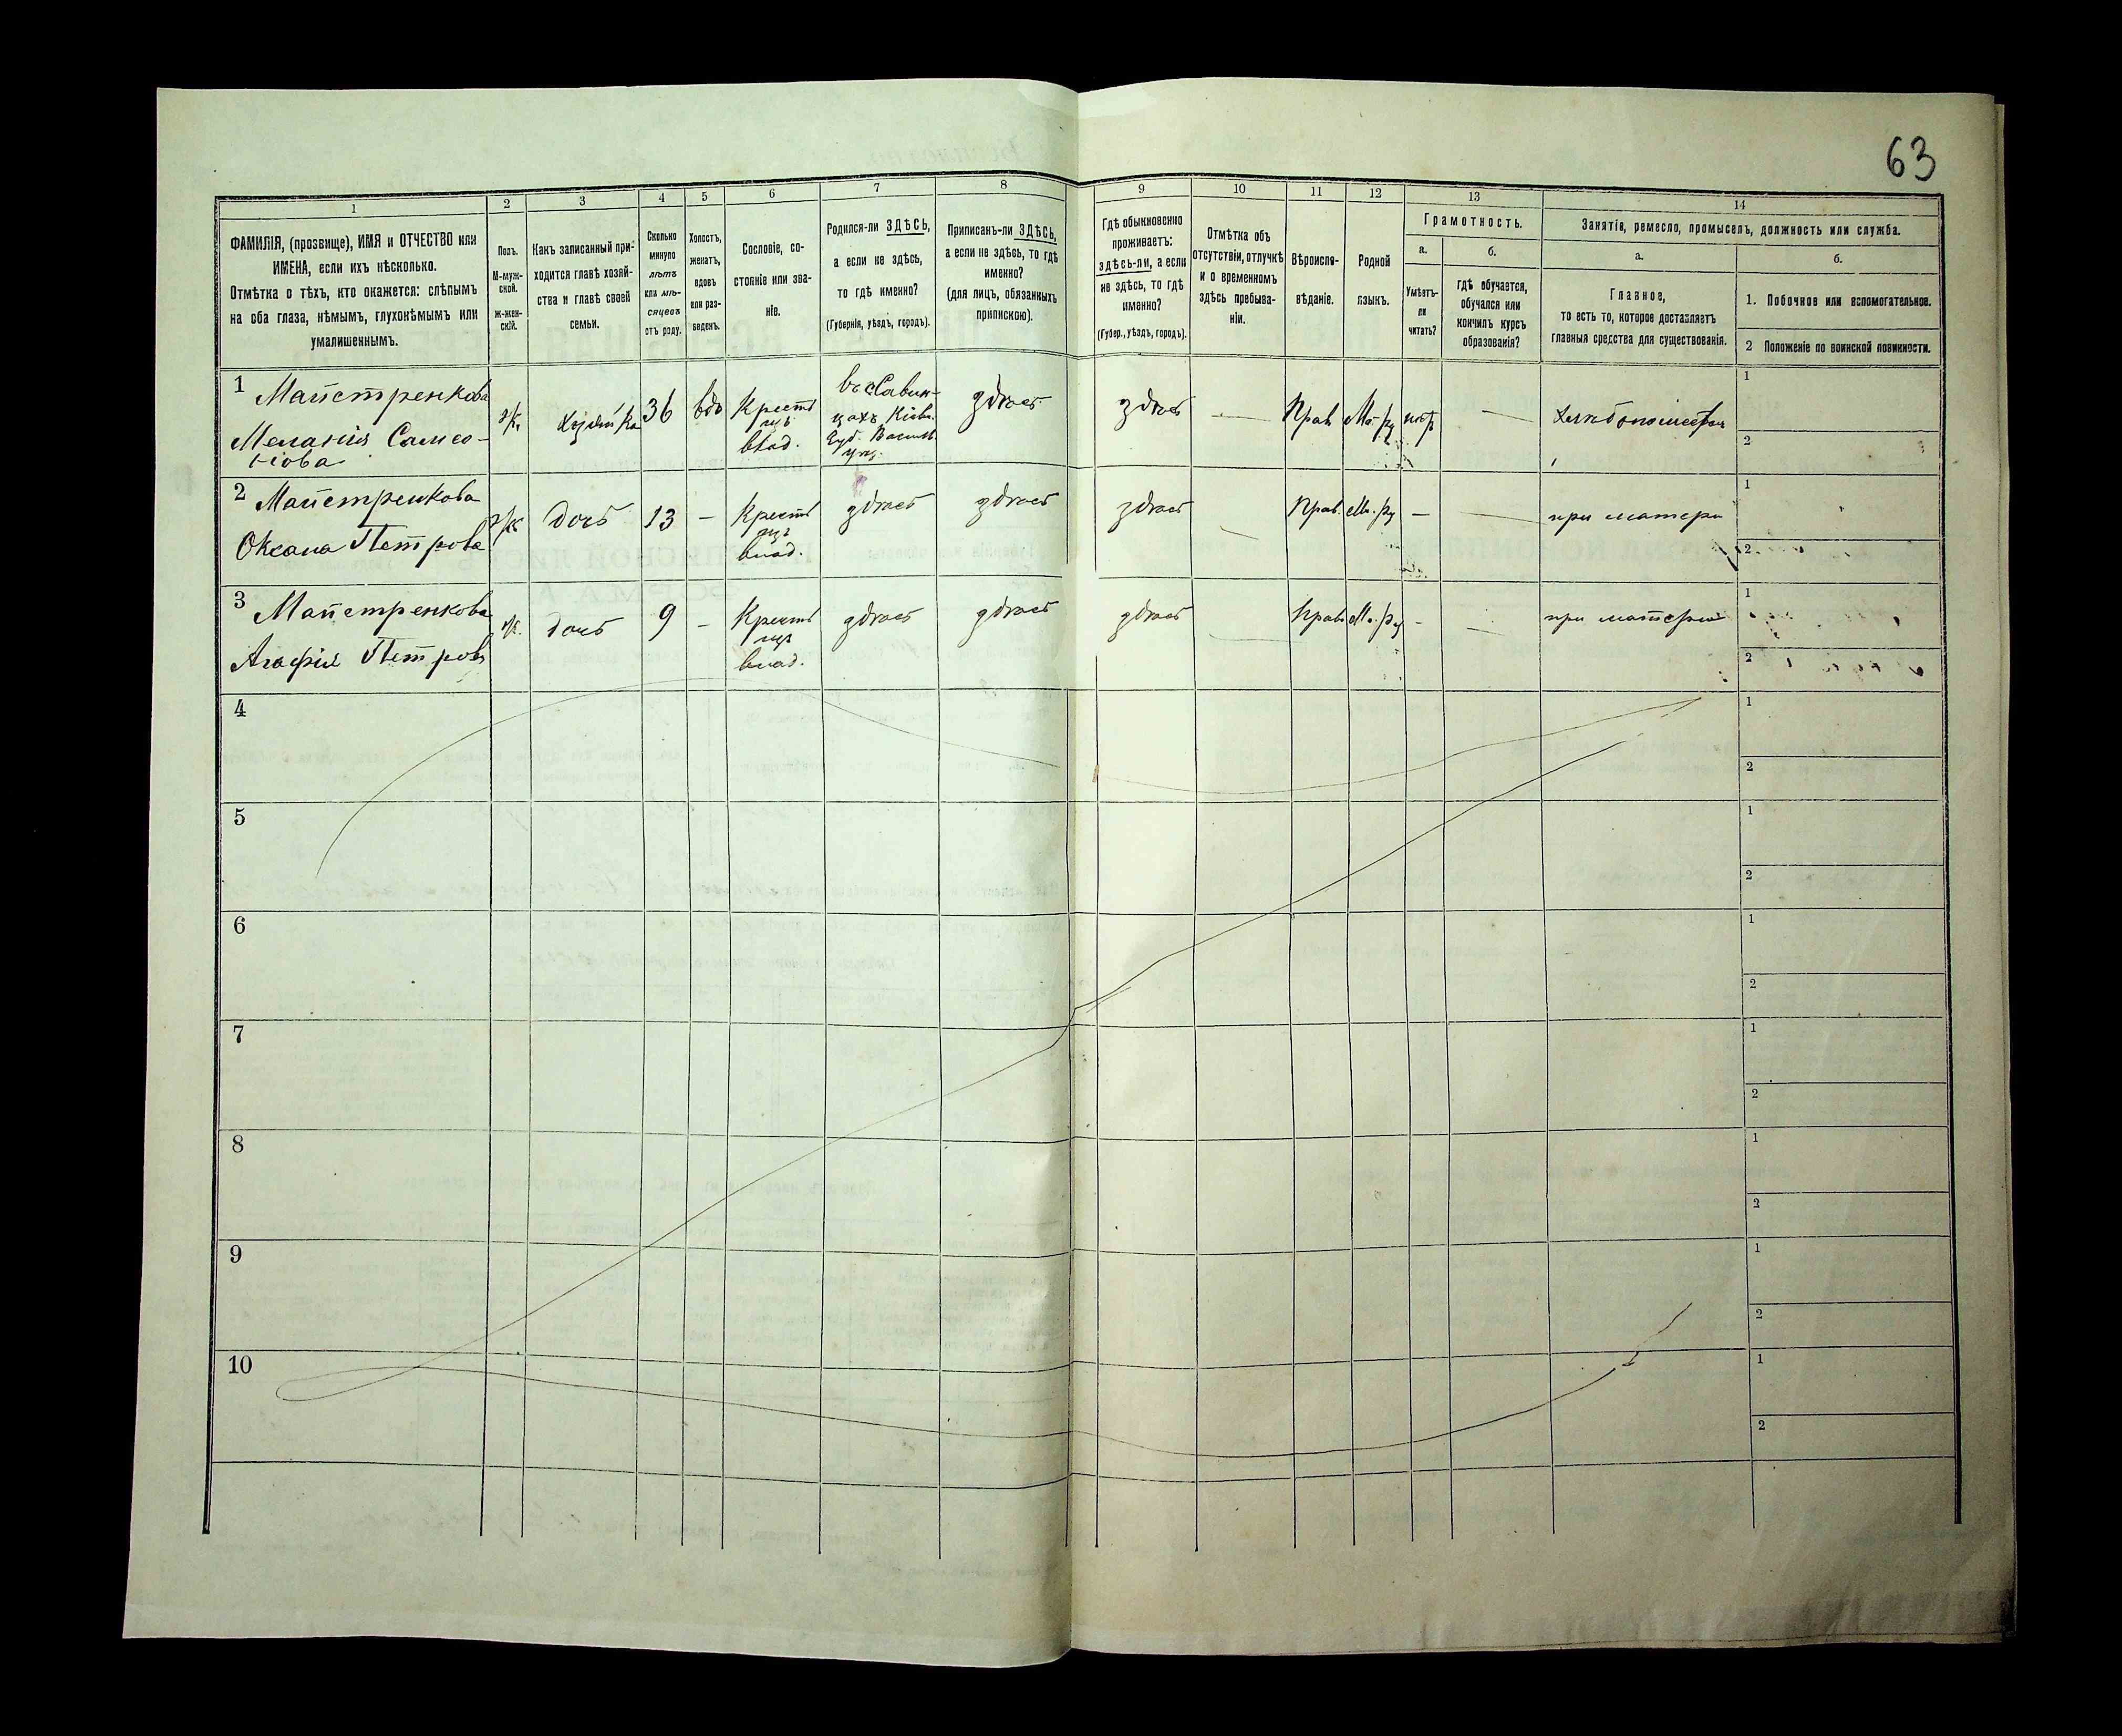 63
1
2
3
4
5
6
7
8
9
10
11
12
13
14
ФАМИЛІЯ, (прозвище), ИМЯ и ОТЧЕСТВО или
ИМЕНА, если ихъ нѣсколько.
Отмѣтка о тѣхъ, кто окажется: слѣпымъ
на оба глаза, нѣмымъ, глухонѣмымъ или
умалишеннымъ.
Полъ.
М-муж-
ской.
Ж-жен-
скій.
Какъ записанный при-
ходится главѣ хозяй-
ства и главѣ своей
семьи.
Сколько
минуло
лѣтъ
или мѣ-
сяцевъ
отъ роду.
Холостъ,
женатъ,
вдовъ
или раз-
веденъ.
Сословіе, со-
стояніе или зва-
ніе.
Родился-ли ЗДѢСЬ,
а если не здѣсь,
то гдѣ именно?
(Губернія, уѣздъ, городъ).
Приписанъ-ли ЗДѢСЬ,
а если не здѣсь, то гдѣ
именно?
(для лицъ, обязанныхъ
припискою).
Гдѣ обыкновенно
проживаетъ:
здѣсь-ли, а если
не здѣсь, то гдѣ
именно?
(Губер., уѣздъ, городъ).
Отмѣтка объ
отсутствіи, отлучкѣ
и о временномъ
здѣсь пребыва-
ніи.
Вѣроиспо-
вѣданіе.
Родной
языкъ.
Грамотность.
а.
Умѣетъ-
ли
читать?
б.
гдѣ обучается,
обучался или
кончилъ курсъ
образованія?
Занятіе, ремесло, промыселъ, должность или служба.
а.
Главное,
то есть то, которое доставляетъ
главныя средства для существованія.
б.
1. Побочное или вспомогательное.
2 Положеніе по воинской повинности.
1 Майстренкова
Меланія Самсо-
нова
ж.
Хозяйка
36
вдо
Крест
изъ
влад.
въ Савин-
цахъ Кіев.
Губ. Васильк
уѣз.
здѣсь
здѣсь
—
Прав
Ма. ру
нѣт
—
1
2
2 Майстренкова
Оксана Петрова
ж
дочь
13
—
Крест
изъ
влад.
здѣсь
здѣсь
здѣсь
—
Прав.
М. ру
—
—
при матери
1
2
3 Майстренкова
Агафія Петрова
ж.
дочь
9
—
Крест
изъ
влад.
здѣсь
здѣсь
здѣсь
—
Прав
М. ру
-
—
при матери
1
2
4
1
2
5
1
2
6
1
2
7
1
2
8
1
2
9
1
2
10
1
2